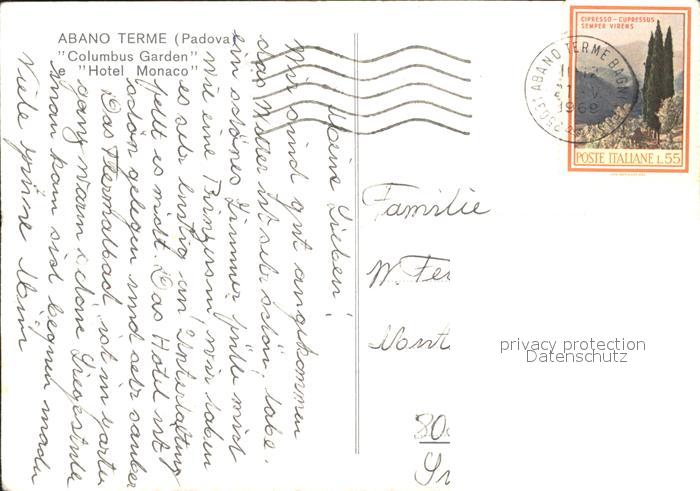 ABANO TERME (Padova)
"Columbus Garden"
e "Hotel Monaco"
Meine Lieben!
Wir sind gut angekommen
das Wetter ist sehr schön, habe
ein schönes Zimmer fühle mich
wie eine Prinzessin, wir haben
es sehr lustig an Unterhaltung
fehlt es nicht. Das Hotel ist
schön gelegen und sehr sauber
Das Thermalbad ist im
ganz warm schöne Liegestühle
man kann sich bequem machen
Viele Grüsse
CIPRESSO - CUPRESSUS
SEMPER VIRENS
POSTE ITALIANE L.55
ABANO TERME BAGNI
Familie
W. Fe
80
privacy protection
Datenschutz